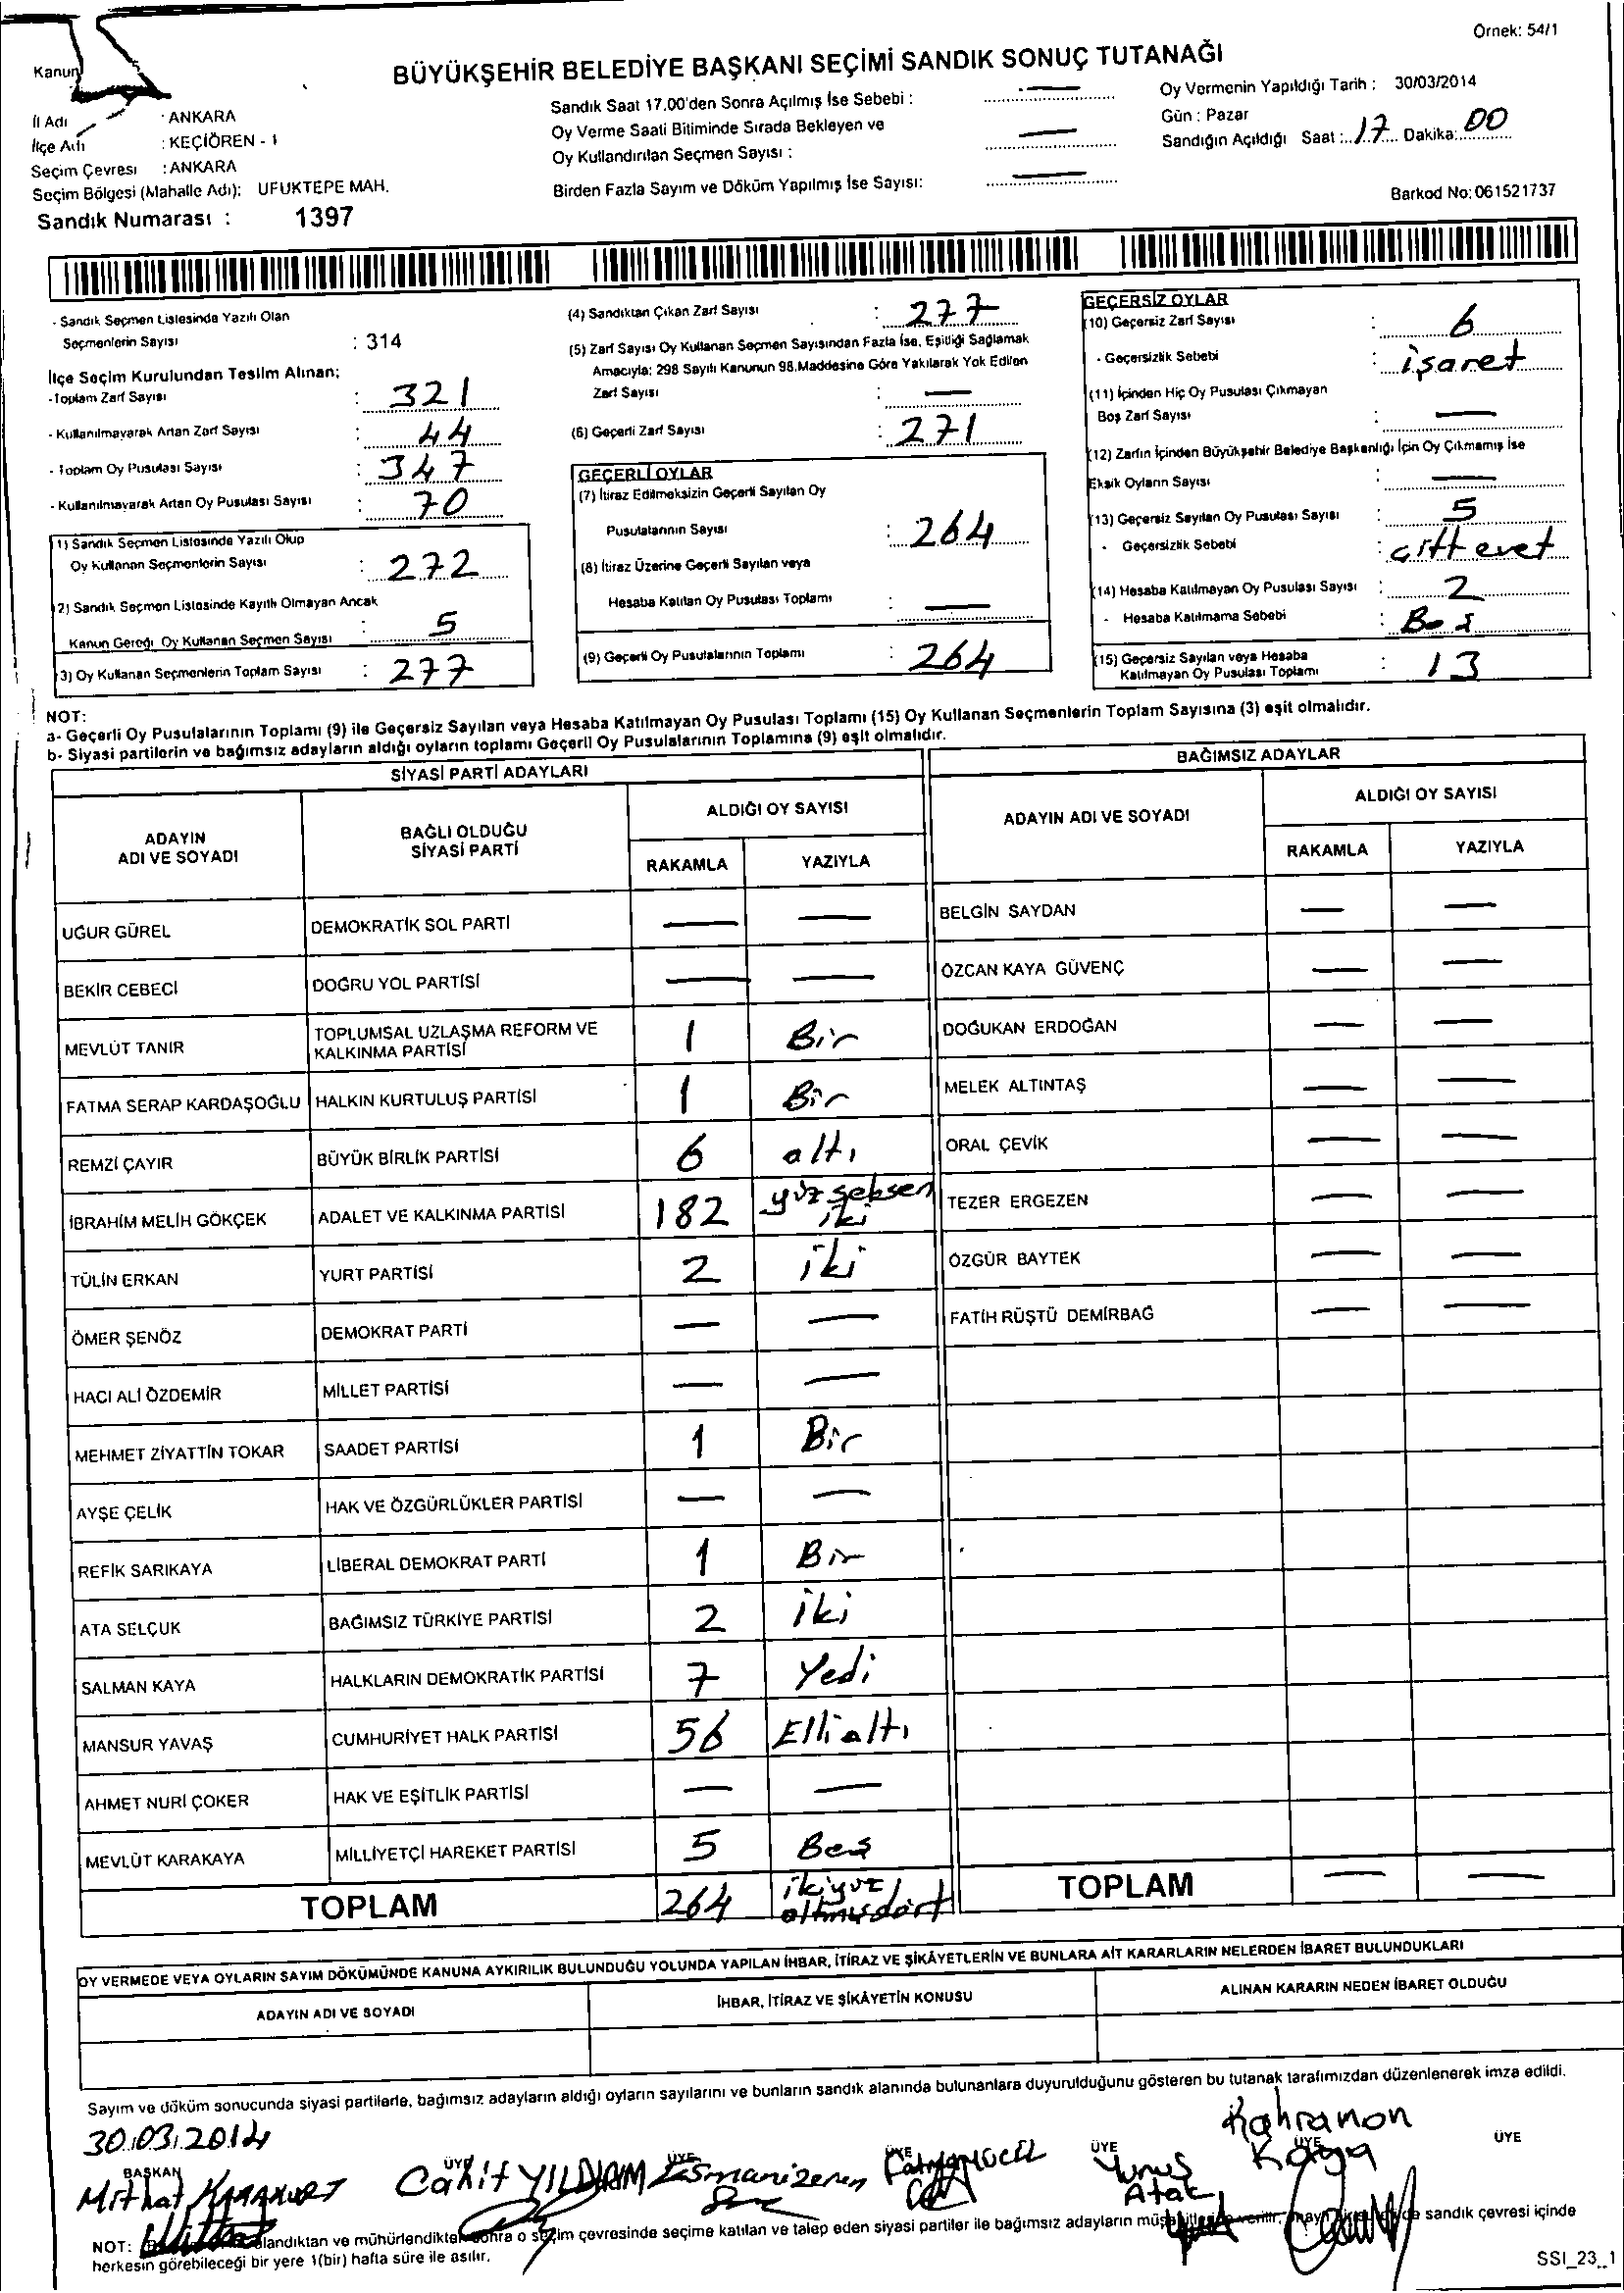 Örnek: 54/1
Kanun
BÜYÜKŞEHİR BELEDİYE BAŞKANI SEÇİMİ SANDIK SONUÇ TUTANAĞI
İl Adı : ANKARA
İlçe Adı : KEÇİÖREN - 1
Seçim Çevresi : ANKARA
Seçim Bölgesi (Mahalle Adı): UFUKTEPE MAH.
Sandık Numarası : 1397
Sandık Saat 17.00'den Sonra Açılmış İse Sebebi : —
Oy Verme Saati Bitiminde Sırada Bekleyen ve
Oy Kullandırılan Seçmen Sayısı : —
Birden Fazla Sayım ve Döküm Yapılmış İse Sayısı: —
Oy Vermenin Yapıldığı Tarih : 30/03/2014
Gün : Pazar
Sandığın Açıldığı Saat : 17 Dakika: 00
Barkod No: 061521737
- Sandık Seçmen Listesinde Yazılı Olan
Seçmenlerin Sayısı : 314
İlçe Seçim Kurulundan Teslim Alınan:
- Toplam Zarf Sayısı : 321
- Kullanılmayarak Artan Zarf Sayısı : 44
- Toplam Oy Pusulası Sayısı : 347
- Kullanılmayarak Artan Oy Pusulası Sayısı : 70
(1) Sandık Seçmen Listesinde Yazılı Olup
Oy Kullanan Seçmenlerin Sayısı : 272
(2) Sandık Seçmen Listesinde Kayıtlı Olmayan Ancak
Kanun Gereği Oy Kullanan Seçmen Sayısı : 5
(3) Oy Kullanan Seçmenlerin Toplam Sayısı : 277
(4) Sandıktan Çıkan Zarf Sayısı : 277
(5) Zarf Sayısı Oy Kullanan Seçmen Sayısından Fazla İse, Eşitliği Sağlamak
Amacıyla; 298 Sayılı Kanunun 98.Maddesine Göre Yakılarak Yok Edilen
Zarf Sayısı : —
(6) Geçerli Zarf Sayısı : 271
GEÇERLİ OYLAR
(7) İtiraz Edilmeksizin Geçerli Sayılan Oy
Pusulalarının Sayısı : 264
(8) İtiraz Üzerine Geçerli Sayılan veya
Hesaba Katılan Oy Pusulası Toplamı : —
(9) Geçerli Oy Pusulalarının Toplamı : 264
GEÇERSİZ OYLAR
(10) Geçersiz Zarf Sayısı : 6
- Geçersizlik Sebebi : işaret
(11) İçinden Hiç Oy Pusulası Çıkmayan
Boş Zarf Sayısı : —
(12) Zarfın İçinden Büyükşehir Belediye Başkanlığı İçin Oy Çıkmamış İse
Eksik Oyların Sayısı : —
(13) Geçersiz Sayılan Oy Pusulası Sayısı : 5
- Geçersizlik Sebebi : çift evet
(14) Hesaba Katılmayan Oy Pusulası Sayısı : 2
- Hesaba Katılmama Sebebi : Boş
(15) Geçersiz Sayılan veya Hesaba
Katılmayan Oy Pusulası Toplamı : 13
NOT:
a- Geçerli Oy Pusulalarının Toplamı (9) ile Geçersiz Sayılan veya Hesaba Katılmayan Oy Pusulası Toplamı (15) Oy Kullanan Seçmenlerin Toplam Sayısına (3) eşit olmalıdır.
b- Siyasi partilerin ve bağımsız adayların aldığı oyların toplamı Geçerli Oy Pusulalarının Toplamına (9) eşit olmalıdır.
SİYASİ PARTİ ADAYLARI BAĞIMSIZ ADAYLAR
ADAYIN ADI VE SOYADI BAĞLI OLDUĞU SİYASİ PARTİ ALDIĞI OY SAYISI ADAYIN ADI VE SOYADI ALDIĞI OY SAYISI
RAKAMLA YAZIYLA RAKAMLA YAZIYLA
UĞUR GÜREL DEMOKRATİK SOL PARTİ — — BELGİN SAYDAN — —
BEKİR CEBECİ DOĞRU YOL PARTİSİ — — ÖZCAN KAYA GÜVENÇ — —
MEVLÜT TANIR TOPLUMSAL UZLAŞMA REFORM VE KALKINMA PARTİSİ 1 Bir DOĞUKAN ERDOĞAN — —
FATMA SERAP KARDAŞOĞLU HALKIN KURTULUŞ PARTİSİ 1 Bir MELEK ALTINTAŞ — —
REMZİ ÇAYIR BÜYÜK BİRLİK PARTİSİ 6 altı ORAL ÇEVİK — —
İBRAHİM MELİH GÖKÇEK ADALET VE KALKINMA PARTİSİ 182 yüz seksen iki TEZER ERGEZEN — —
TÜLİN ERKAN YURT PARTİSİ 2 iki ÖZGÜR BAYTEK — —
ÖMER ŞENÖZ DEMOKRAT PARTİ — — FATİH RÜŞTÜ DEMİRBAĞ — —
HACI ALİ ÖZDEMİR MİLLET PARTİSİ — —
MEHMET ZİYATTİN TOKAR SAADET PARTİSİ 1 Bir
AYŞE ÇELİK HAK VE ÖZGÜRLÜKLER PARTİSİ — —
REFİK SARIKAYA LİBERAL DEMOKRAT PARTİ 1 Bir
ATA SELÇUK BAĞIMSIZ TÜRKİYE PARTİSİ 2 iki
SALMAN KAYA HALKLARIN DEMOKRATİK PARTİSİ 7 Yedi
MANSUR YAVAŞ CUMHURİYET HALK PARTİSİ 56 Elli altı
AHMET NURİ ÇOKER HAK VE EŞİTLİK PARTİSİ — —
MEVLÜT KARAKAYA MİLLİYETÇİ HAREKET PARTİSİ 5 Beş
TOPLAM 264 ikiyüz altmışdört TOPLAM — —
OY VERMEDE VEYA OYLARIN SAYIM DÖKÜMÜNDE KANUNA AYKIRILIK BULUNDUĞU YOLUNDA YAPILAN İHBAR, İTİRAZ VE ŞİKÂYETLERİN VE BUNLARA AİT KARARLARIN NELERDEN İBARET BULUNDUKLARI
ADAYIN ADI VE SOYADI İHBAR, İTİRAZ VE ŞİKÂYETİN KONUSU ALINAN KARARIN NEDEN İBARET OLDUĞU
Sayım ve döküm sonucunda siyasi partilerle, bağımsız adayların aldığı oyların sayılarını ve bunların sandık alanında bulunanlara duyurulduğunu gösteren bu tutanak tarafımızdan düzenlenerek imza edildi.
30.03.2014
BAŞKAN ÜYE ÜYE ÜYE ÜYE ÜYE ÜYE
Mithat KARAKURT Cahit YILDIRIM Yunus Atak Kahraman Kaya
NOT: landıktan ve mühürlendikten sonra o seçim çevresinde seçime katılan ve talep eden siyasi partiler ile bağımsız adayların sandık çevresi içinde
herkesin görebileceği bir yere 1(bir) hafta süre ile asılır.
SSI_23_1